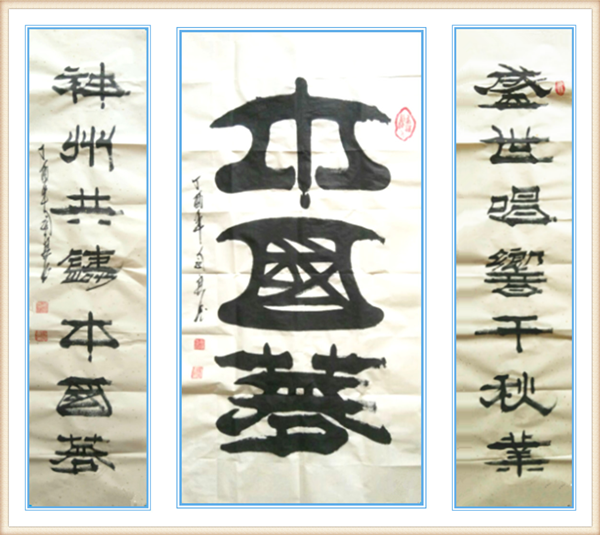 盛世唱響千秋業
中國夢
丁酉年
神州共鑄中國夢
丁酉年